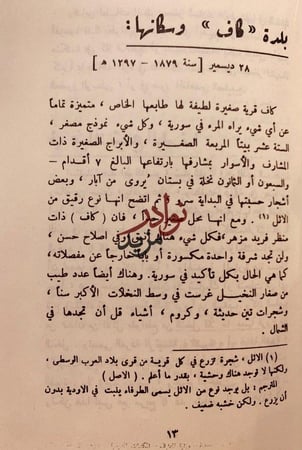 بلدة «كاف» وسكانها :
٢٨ ديسمبر [ سنة ١٨٧٩ - ١٢٩٧ هـ ]
كاف قرية صغيرة لطيفة لها طابعها الخاص ، متميزة تماما
عن أي شيء يراه المرء في سورية ، وكل شيء نموذج مصغر ،
الستة عشر بيتاً المربعة الصغيرة ، والأبراج الصغيرة ذات
المشارف والأسوار بمشارفها بارتفاعها البالغ ٧ أقدام –
والسبعون أو الثمانون نخلة في بستان يُروى من آبار ، وبعض
أشجار حسبتها في البداية سرو ثم اتضح انها نوع رقيق من
الاثل (١) . ومع انها محل فإن ( كاف ) ذات
منظر فريد مزهر ، فكل شيء هنا إصلاح حسن ،
ولن تجد شرفة واحدة مكسورة أو باباً خارجاً عن مفصلاته ،
كما هي الحال بكل تأكيد في سورية . وهناك أيضاً عدد طيب
من صغار النخيل غرست في وسط النخلات الأكبر سناً ،
وشجرات تين حديثة ، وكروم ، أشياء قل أن تجدها في
الشمال .
(١) الاثل ، شجرة تزرع في كل قرية من قرى بلاد العرب الوسطى ،
ولكنها لا توجد هناك وحشية ، بقدر ما أعلم . ( الاصل )
المترجم : بل يوجد نوع من الاثل يسمى الطرفاء ينبت في الاودية بدون
أن يزرع . ولكن خشبه ضعيف .
نوادر
مزيد
١٣